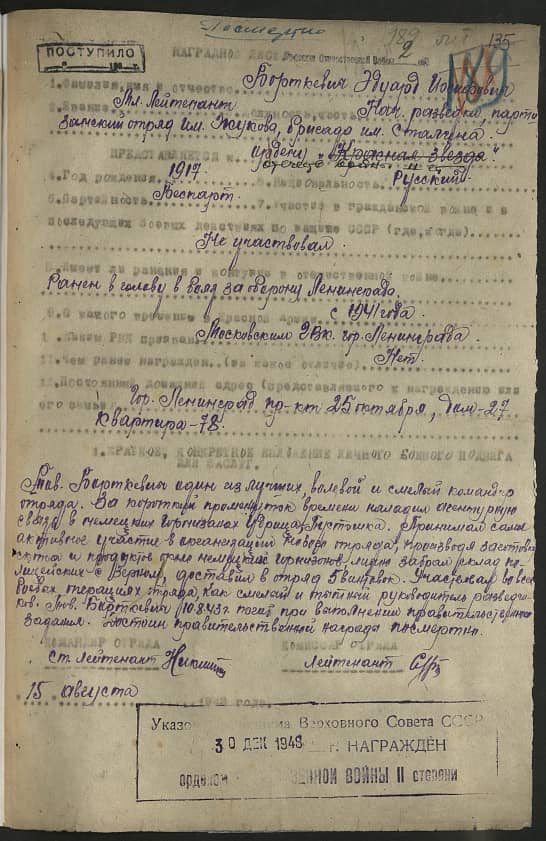 Посмертно
189
135
ПОСТУПИЛО
НАГРАДНОЙ ЛИСТ
Орденом Отечественной Войны 2
189
1. Фамилия, имя и отчество Борткевич Эдуард Иосифович
2. Звание Мл. Лейтенант
Нач. разведки, парти
занский отряд им. Жукова, бригада им. Сталина
ПРЕДСТАВЛЯЕТСЯ к ордену "Красная звезда".
4. Год рождения 1917 5. Национальность Русский
6. Партийность Беспарт. 7. Участие в гражданской войне и в
последующих боевых действиях по защите СССР (где, когда)
Не участвовал.
8. Имеет ли ранения и контузии в отечественной войне
Ранен в голову в боях за оборону Ленинграда.
9. С какого времени в Красной армии с 1941 года.
Каким РВК призван Московским РВК. гор. Ленинграда.
11. Чем ранее награжден (за какое отличие) Нет
12. Постоянный домашний адрес (представляемого к награждению или
его семьи)
Гор. Ленинград пр-кт 25 октября, дом-27
квартира-78.
1. КРАТКОЕ, КОНКРЕТНОЕ ИЗЛОЖЕНИЕ ЛИЧНОГО БОЕВОГО ПОДВИГА
ИЛИ ЗАСЛУГ.
Тов. Борткевич один из лучших, волевой и смелый командир
отряда. За короткий промежуток времени наладил агентурную
связь в немецких гарнизонах Идрица, Пустошка. Принимал самое
активное участие в организации отряда, производя заготовку
скота и продуктов немецких гарнизонов, лично забрал склад по-
лицейских с зерном, доставил в отряд 5 винтовок. Участвовал во всех
боевых операциях отряда, как смелый и опытный руководитель разведчи-
ков. Тов. Борткевич 10.8.43 г. погиб при выполнении правительственного
задания. Достоин правительственной награды посмертно.
КОМАНДИР ОТРЯДА КОМИССАР ОТРЯДА
ст. лейтенант лейтенант
15 августа 1943 года.
Указом Президиума Верховного Совета СССР
30 ДЕК 1948 г. НАГРАЖДЁН
орденом ОТЕЧЕСТВЕННОЙ ВОЙНЫ II степени